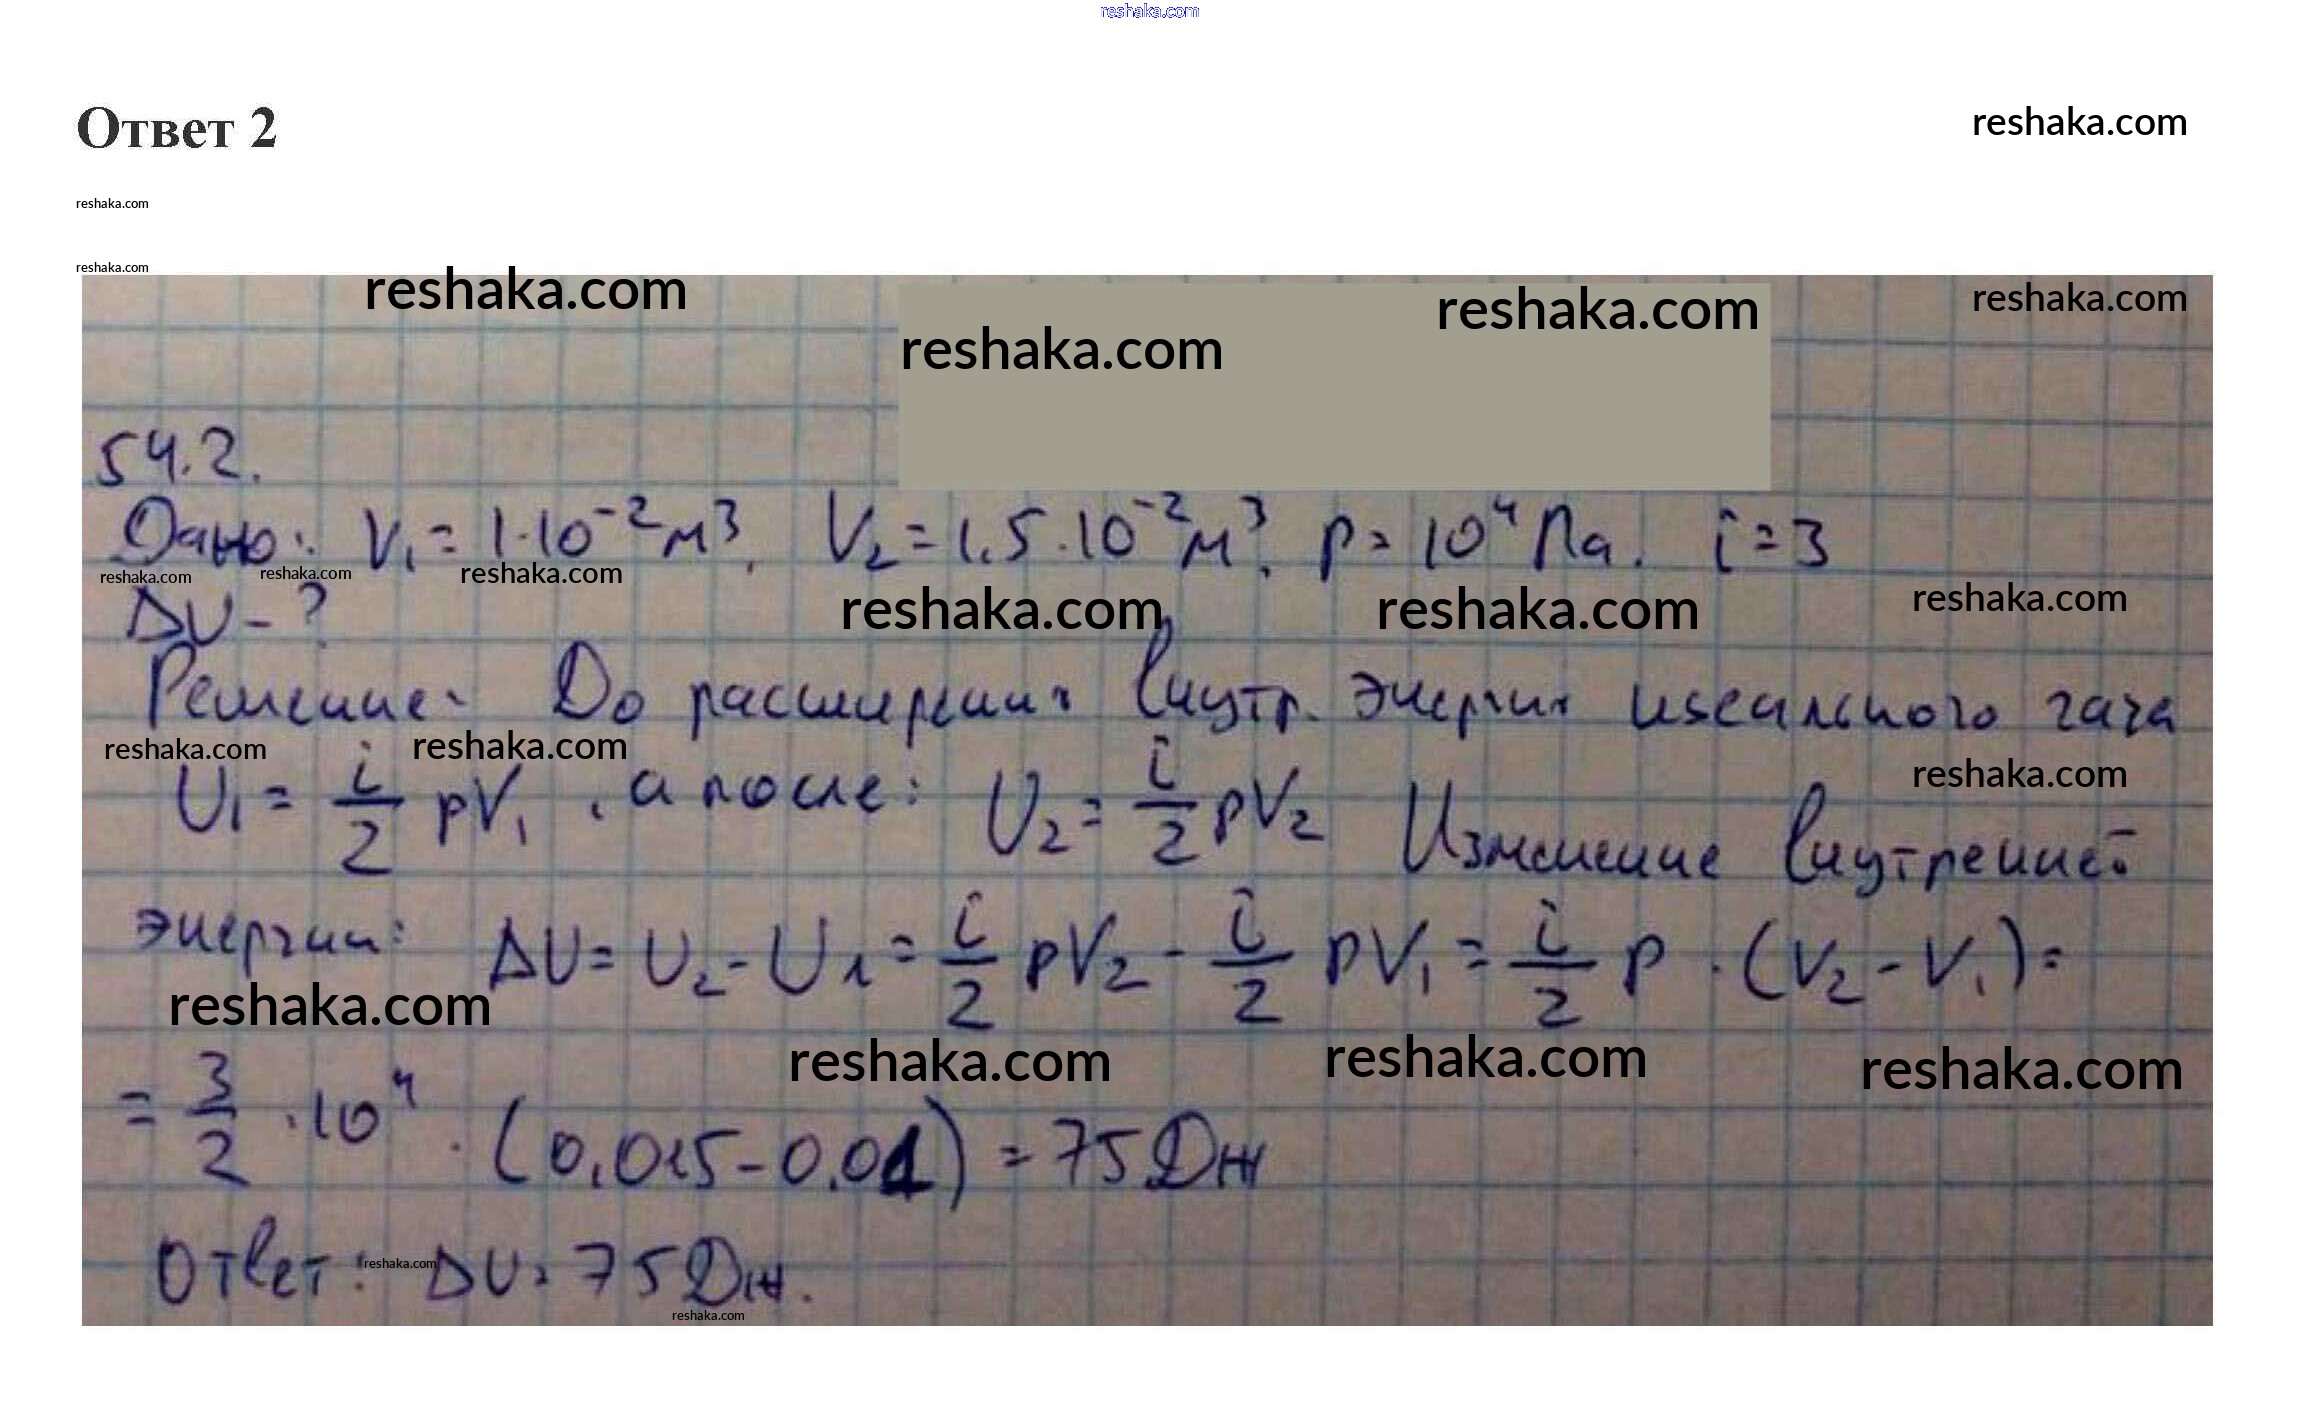 reshaka.com
Ответ 2
reshaka.com
reshaka.com
reshaka.com
reshaka.com
reshaka.com
reshaka.com
reshaka.com
54.2.
Дано: V₁ = 1·10⁻² м³, V₂ = 1,5·10⁻² м³, p = 10⁴ Па. i = 3
reshaka.com reshaka.com reshaka.com
reshaka.com reshaka.com reshaka.com
ΔU - ?
Решение: До расширения внутр. энергия идеального газа
reshaka.com reshaka.com reshaka.com
U₁ = i/2 pV₁, а после: U₂ = i/2 pV₂ Изменение внутренней
энергии: ΔU = U₂ - U₁ = i/2 pV₂ - i/2 pV₁ = i/2 p · (V₂ - V₁) =
reshaka.com
reshaka.com reshaka.com reshaka.com
= 3/2 · 10⁴ · (0,015 - 0,01) = 75 Дж
Ответ: ΔU = 75 Дж.
reshaka.com
reshaka.com